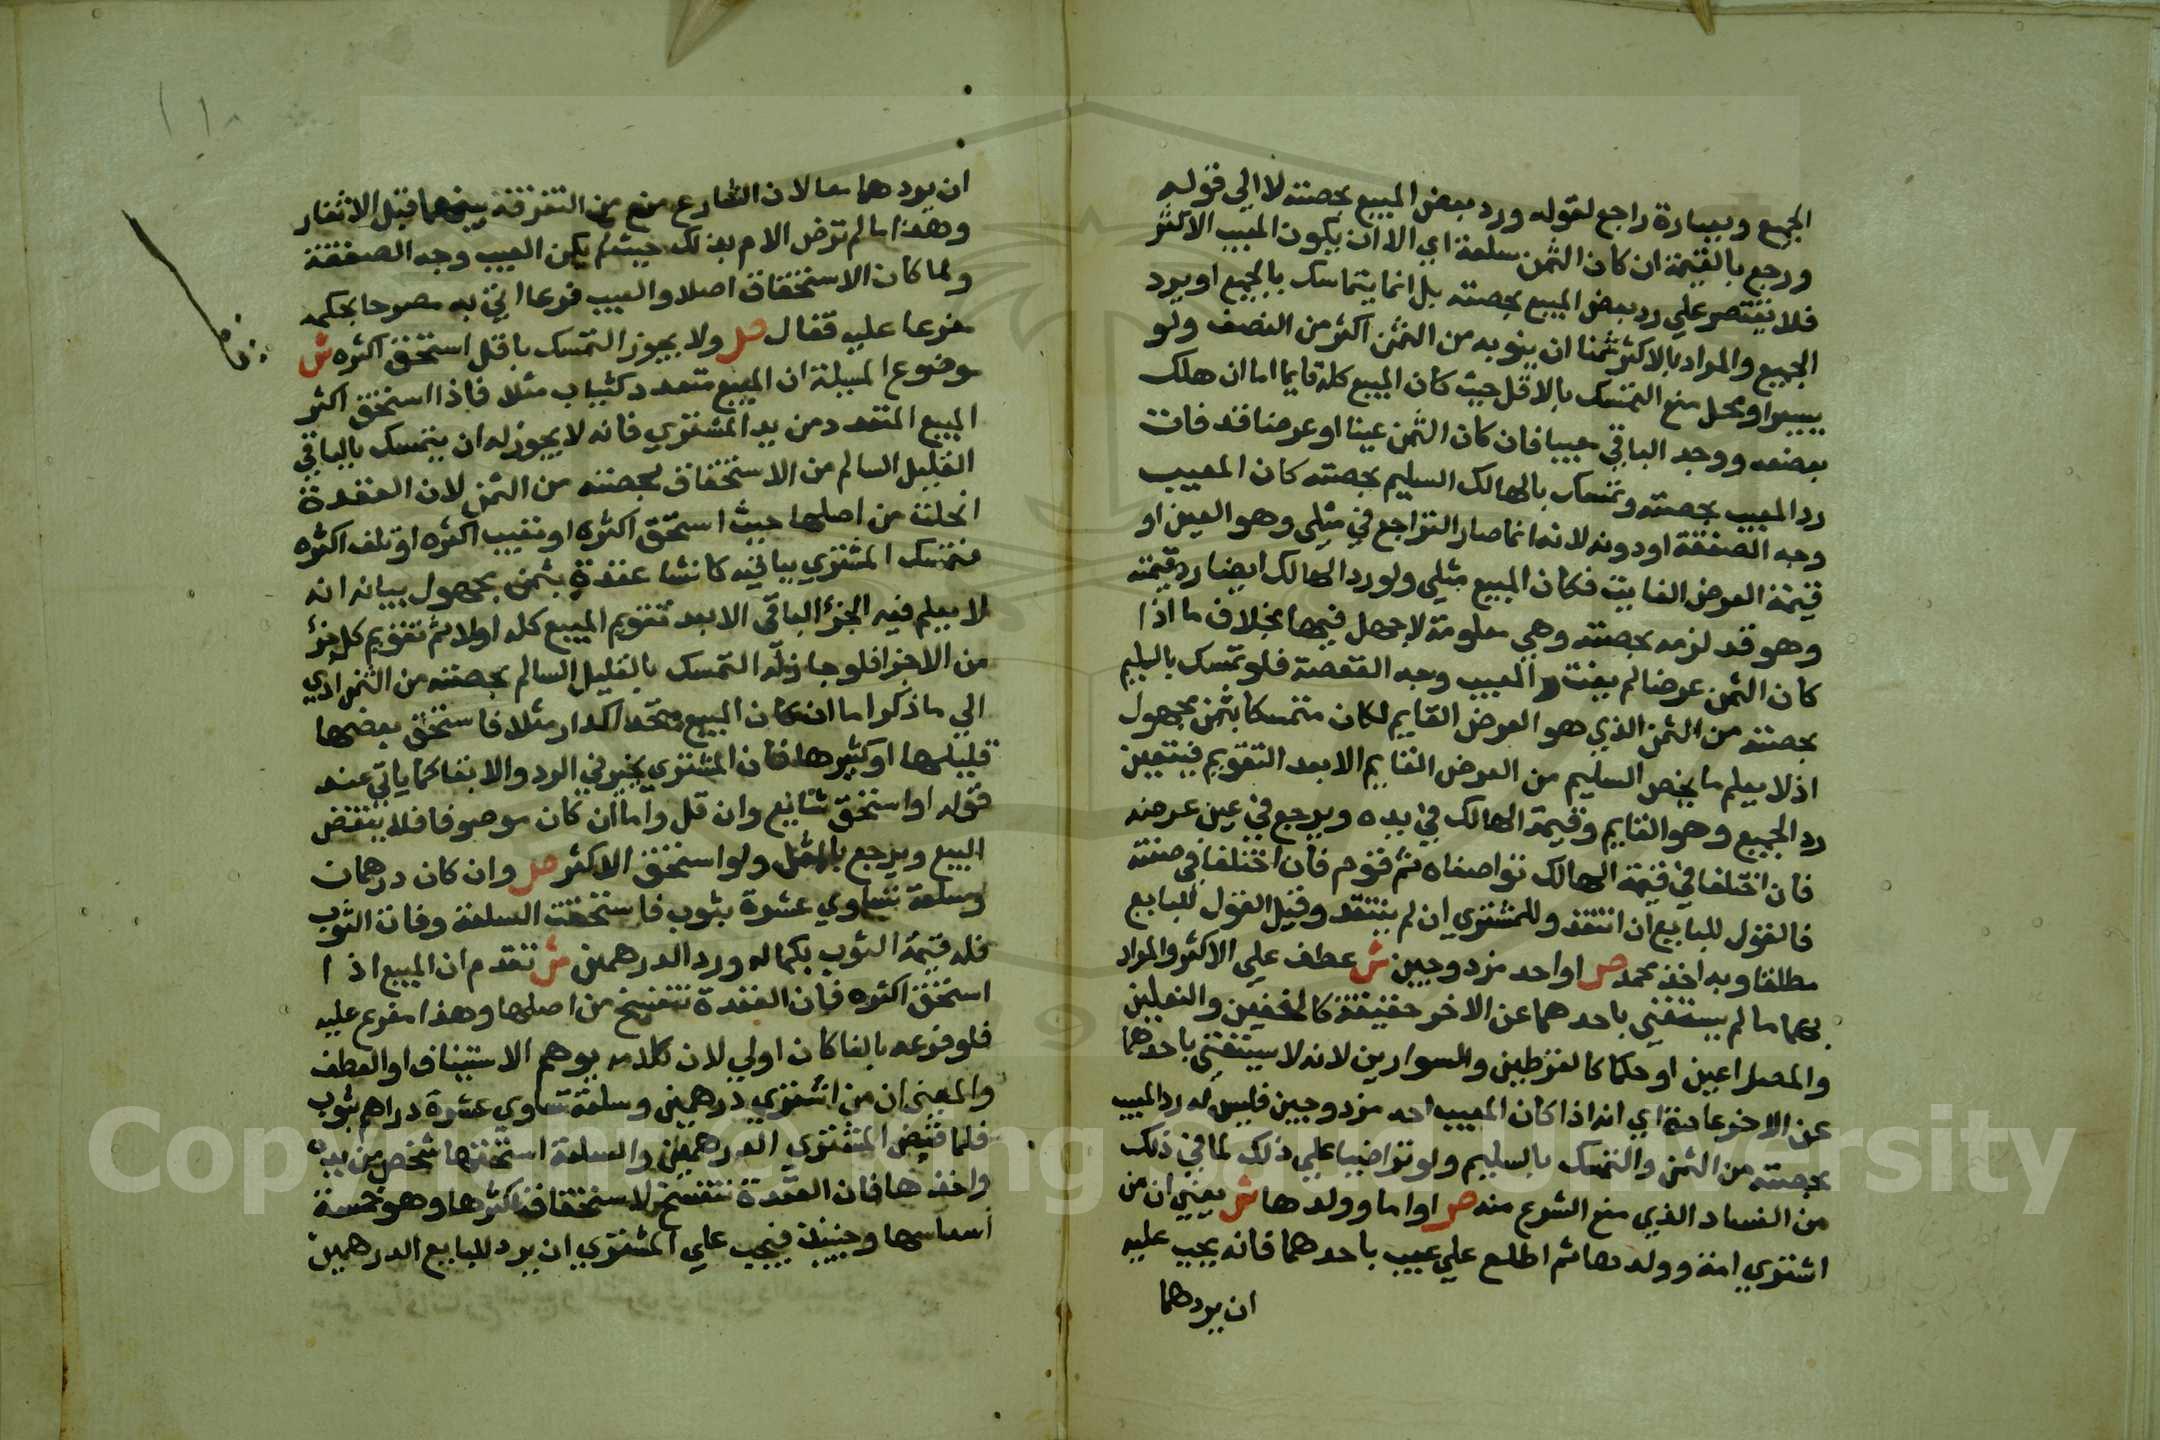 الجميع وبعبارة راجع لقوله ورد بعض المبيع بحصته لا الي قوله
ورجع بالقيمة ان كان الثمن سلعة اي الا ان يكون المعيب الاكثر
فلا يقتصر علي رد بعض المبيع بحصته بل انما يتماسك بالجميع او يرد
الجميع والمراد بالاكثر ثمنا ان ينوبه من الثمن اكثر من النصف ولو
يسيرا ومحل منع التمسك بالاقل حيث كان المبيع كله قايما اما ان هلك
بعضه ووجد الباقي معيبا فان كان الثمن عينا او عرضا قد فات
رد المعيب بحصته وتمسك بالهالك السليم بحصته كان المعيب
وجه الصفقة او دونه لانه انما صار التراجع في مثلي وهو العين او
قيمة العرض الفايت فكان المبيع مثلي ولو رد الهالك ايضا رد قيمته
وهو قد لزمه بحصته وهي معلومة لا جهل فيها بخلاف ما اذا
كان الثمن عرضا لم يفت والمعيب وجه الصفقة فلو تمسك بالسليم
بحصته من الثمن الذي هو العرض القايم لكان متمسكا بثمن مجهول
اذ لا يعلم ما يخص السليم من العرض القايم الا بعد التقويم فيتعين
رد الجميع وهو القايم وقيمة الهالك في يده ويرجع في عين عرضه
فان اختلفا في قيمة الهالك تواصفاه ثم قوم فان اختلفا في صفته
فالقول للبايع ان انتقد وللمشتري ان لم ينتقد وقيل القول للبايع
مطلقا وبه اخذ محمد ص او احد مزدوجين ش عطف علي الاكثر والمراد
بهما ما لم يستغني باحدهما عن الاخر حقيقة كالخفين والنعلين
والمصراعين او حكما كالقرطين والسوارين لانه لا يستغني باحدهما
عن الاخر عادة اي انه اذا كان المعيب احد مزدوجين فليس له رد المعيب
بحصته من الثمن والتمسك بالسليم ولو تراضيا علي ذلك لما في ذلك
من الفساد الذي منع الشرع منه ص او اما وولدها ش يعني ان من
اشتري امة وولدها ثم اطلع علي عيب باحدهما فانه يجب عليه
ان يردهما
١١٨
ان يردهما معا لان الشارع منع من التفرقة بينهما قبل الاثغار
وهذا ما لم ترض الام بذلك حيث لم يكن المعيب وجه الصفقة
ولما كان الاستحقاق اصلا والعيب فرعا اتي به مصرحا بحكمه
مفرعا عليه فقال ص ولا يجوز التمسك باقل استحق اكثره ش
موضوع المسيلة ان المبيع متعدد كثياب مثلا فاذا استحق اكثر
المبيع المتعدد من يد المشتري فانه لا يجوز له ان يتمسك بالباقي
القليل السالم من الاستحقاق بحصته من الثمن لان العقدة
انحلت من اصلها حيث استحق اكثره او تعيب اكثره او تلف اكثره
فتمسك المشتري بباقيه كانشا عقدة بثمن مجهول بيانه انه
لا يعلم فيه الجزء الباقي الا بعد تقويم المبيع كله اولا ثم تقويم كل جزء
من الاجزا فلو جاز له التمسك بالقليل السالم بحصته من الثمن ادي
الي ما ذكر اما ان كان المبيع متحدا كدار مثلا فاستحق بعضها
قليلها او كثيرها فان المشتري يخير في الرد والابقا كما ياتي عند
قوله او استحق شايع وان قل واما ان كان موصوفا فلا ينتقض
البيع ويرجع بالمثل ولو استحق الاكثر ص وان كان درهمان
وسلعة تساوي عشرة بثوب فاستحقت السلعة وفات الثوب
فله قيمة الثوب بكماله ورد الدرهمين ش تقدم ان المبيع اذا
استحق اكثره فان العقدة تنفسخ من اصلها وهذا مفرع عليه
فلو فرعه بالفا كان اولي لان كلامه يوهم الاستيناف او العطف
والمعني ان من اشتري درهمين وسلعة تساوي عشرة دراهم بثوب
فلما قبض المشتري الدرهمين والسلعة استحقها شخص من يده
واخذها فان العقدة تنفسخ لاستحقاق اكثرها وهو خمسة
اسداسها وحينيذ فيجب علي المشتري ان يرد للبايع الدرهمين
Copyright © King Saud University